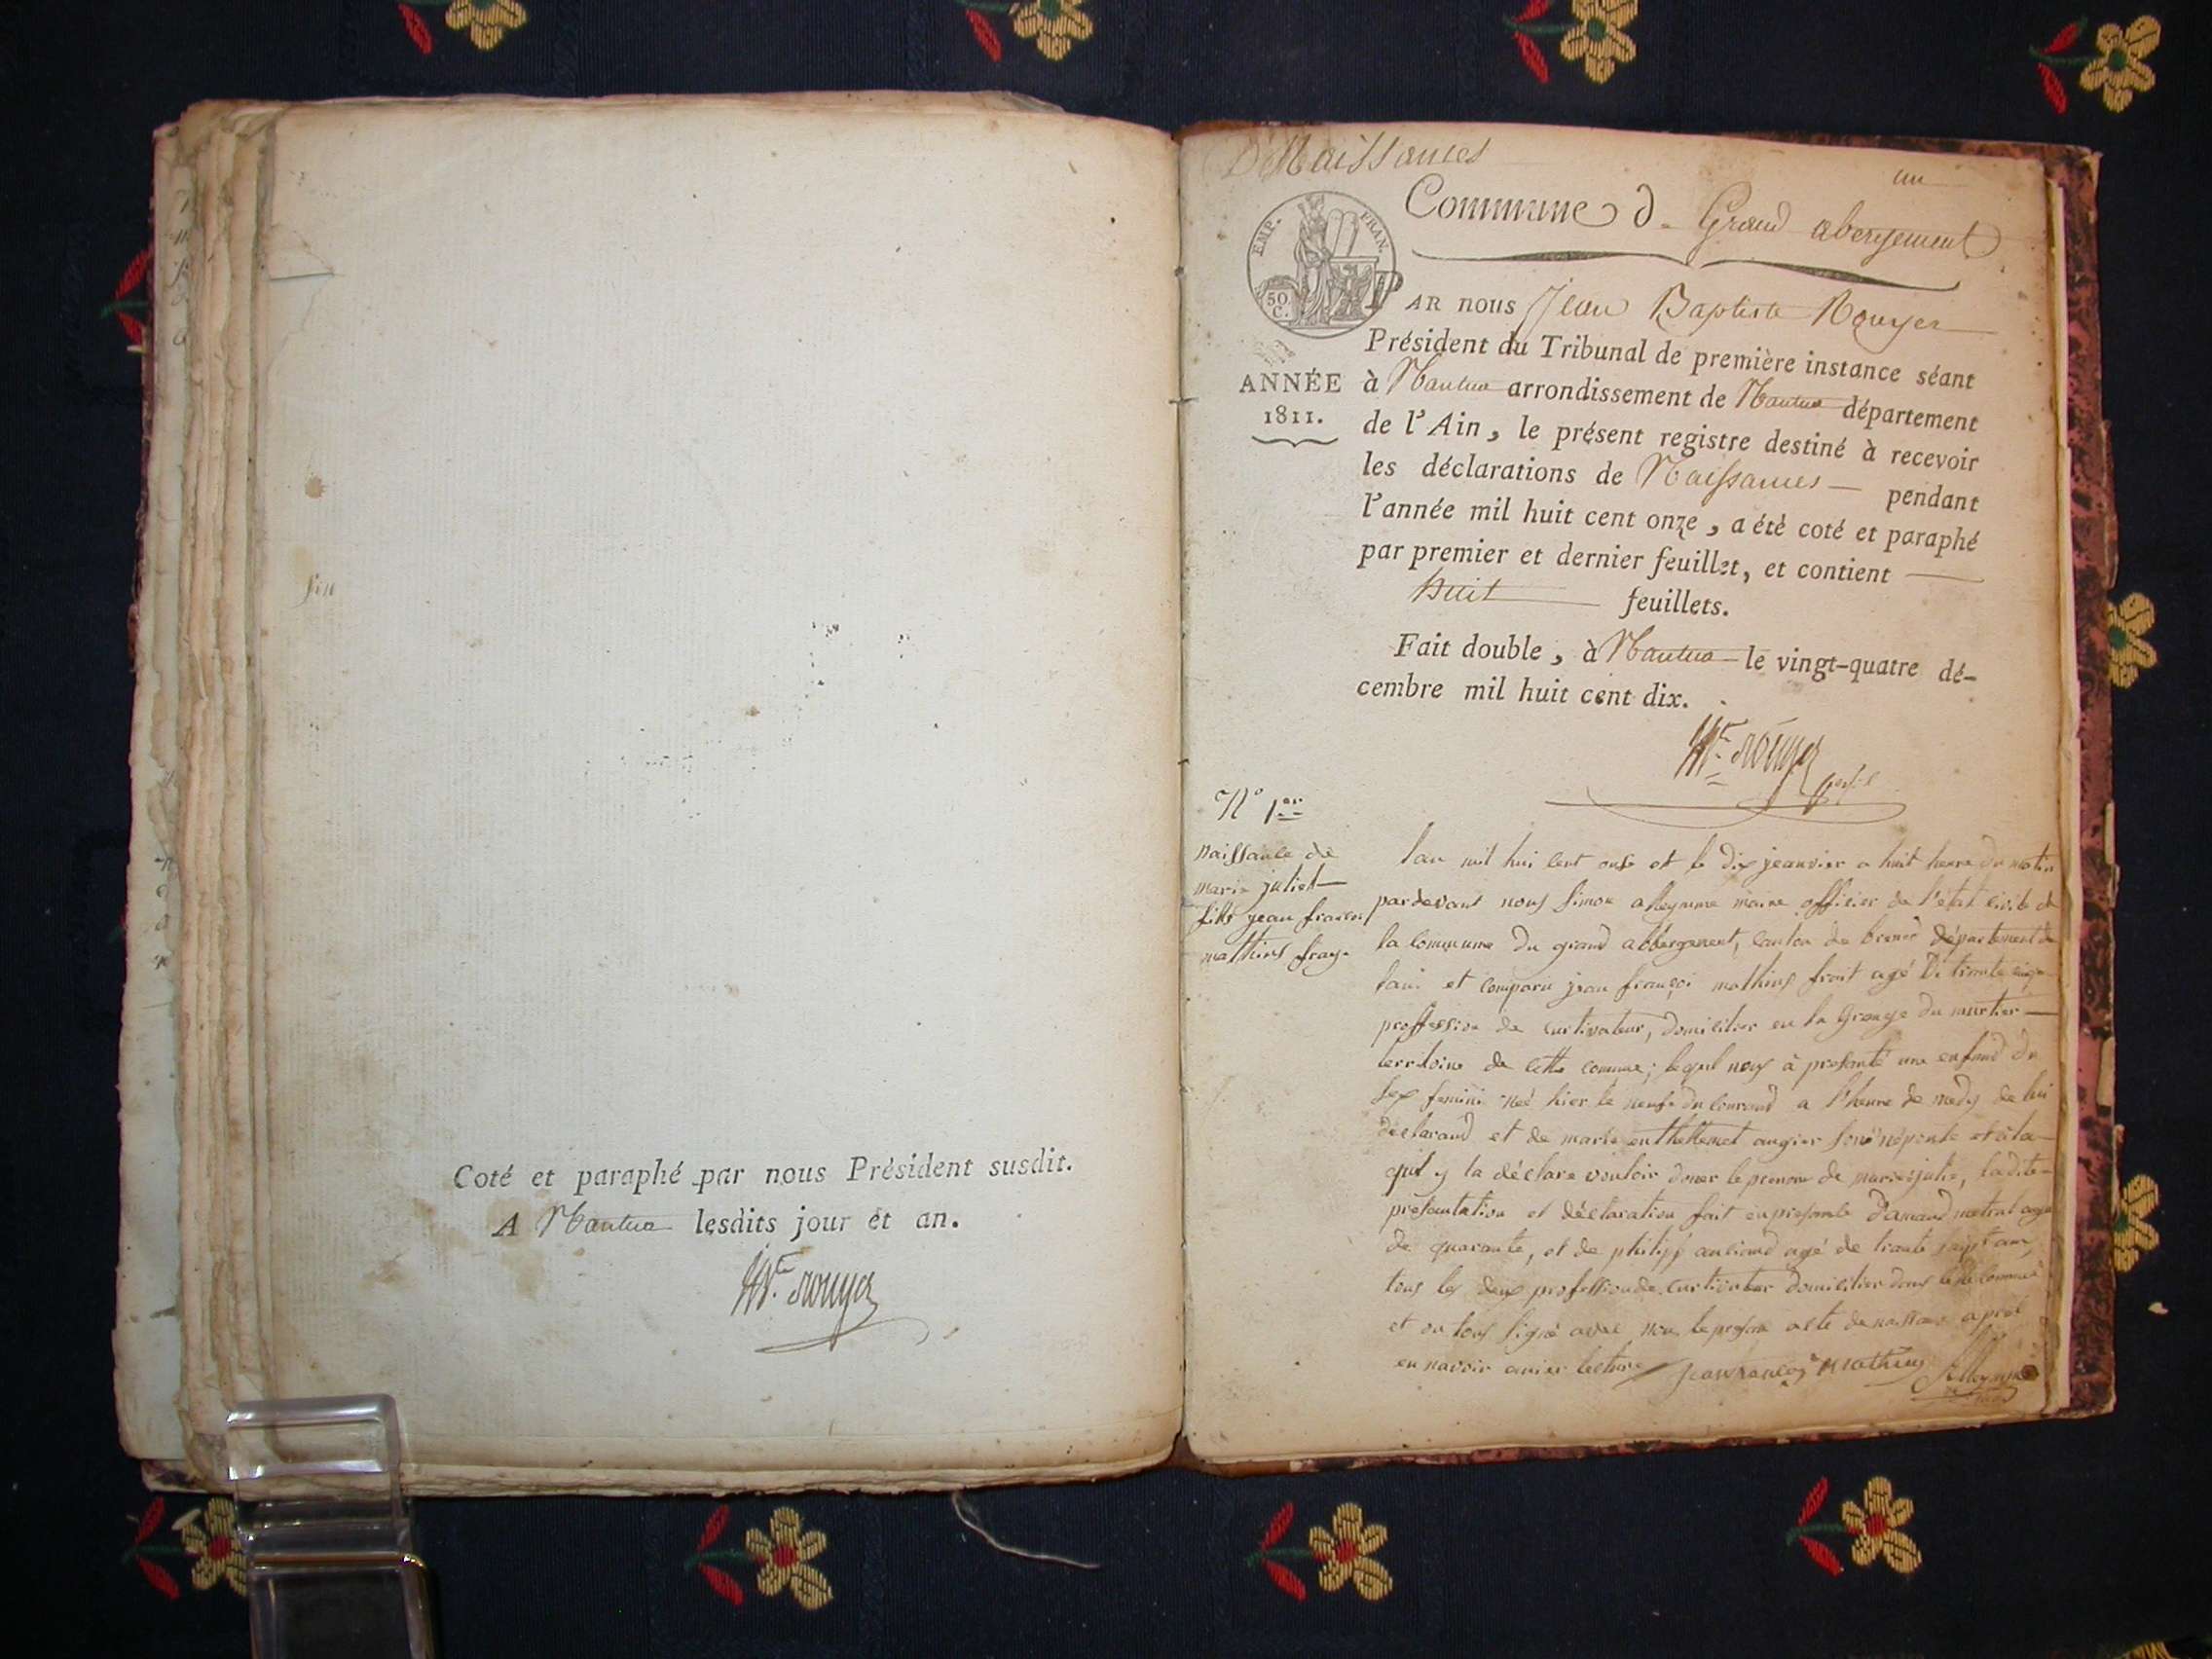 Coté et paraphé par nous Président susdit.
A Nantua lesdits jour et an.
Naissances
un
Commune d Grand abergement
EMP. FRAN.
50 C.
PAR nous Jean Baptiste Rouyer
Président du Tribunal de première instance séant
ANNÉE
1811.
à Nantua arrondissement de Nantua département
de l'Ain, le présent registre destiné à recevoir
les déclarations de Naissances pendant
l'année mil huit cent onze, a été coté et paraphé
par premier et dernier feuillet, et contient
huit feuillets.
Fait double, à Nantua le vingt-quatre dé-
cembre mil huit cent dix.
N° 1er
naissance de
marie juliet
fille jean francoi
mathieu
lan mil hui cent onse et le dix jeanvier a huit heure du matin
pardevant nous simon alleymme maire officier de l'état civile de
la commune du grand abbergement, canton de brenod département de
lain et comparu jean françoi mathieu agé de trante
proffession de curtivateur, domicilier en la Grange du murtier
territoire de cette comune; lequel nous à presanté une enfand du
sex feminin neé hier le neuf du courand a l'heure de de lui
déclarand et de marie augier
la déclare vouloir doner le prenom de marie julie, ladite
présentation et déclaration fait en presance d'amand metral agé
de quarante, et de philipp agé de trante saipt ans
tous les deux proffession de curtivateur domicilier dans
et on tous signé avec nous le presan acte de naissance aprés
en navoir lecture jeanfrançoi Mathieu Alleymme